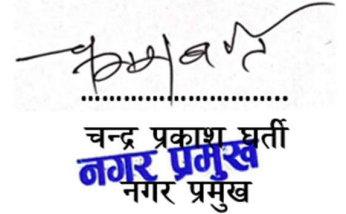 चन्द्र प्रकाश घर्ती
नगर प्रमुख
नगर प्रमुख